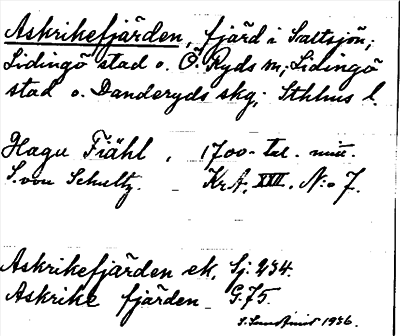 Askrikefjärden, fjärd i Saltsjön;
Lidingö stad o. Ö. Ryds sn; Lidingö
stad o. Danderyds skg; Sthlms l.
Hagu Fiähl, 1700-tal. mitt.
S. von Schultz. KrA. XXII. N:o 7.
Askrikefjärden ek. Sj. 234.
Askrike fjärden G.75.
1946.